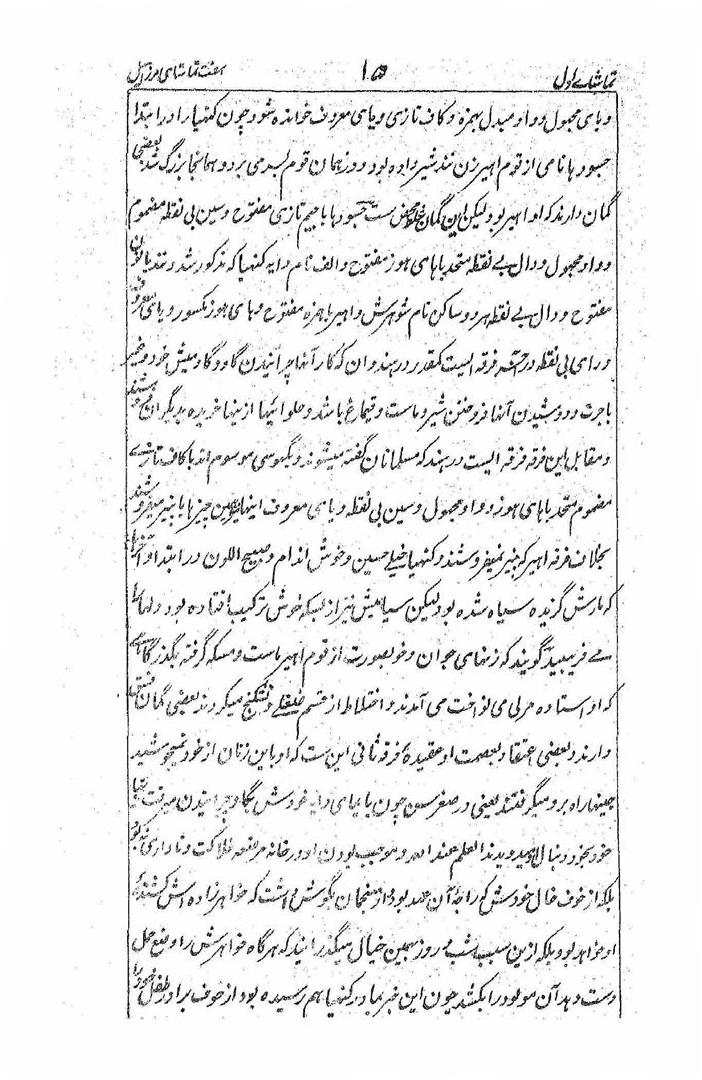 تماشاے اول ۱۵ هفت تماشای مرزا قتیل
و یای مجهول و واو مبدل بهمزه و کاف تازی و یای معروف خوانده شود چون کنهیا را در ابتدا
جسودها نامی از قوم اهیر زن نند شیر داده بود و در همان قوم بسر می برد و همانجا بزرگ شد بعضی
گمان دارند که او اهیر بود لیکن این گمان غلط محض ست جسودها با جیم تازی مفتوح و سین بی نقطه مضموم
و واو مجهول و دال بے نقطه متحد باهای هوز مفتوح و الف نام دایه کنهیا که مذکور شد و نند با نون
مفتوح و دال بے نقطه هر دو ساکن نام شوهرش و اهیر با همزه مفتوح و های هوز مکسور و یای معروف
و رای بی نقطه در آخر فرقه ایست کم قدر در هندوان که کار آنها چرانیدن گاو و گاومیش خود و غیر
باجرت و دوشیدن آنها فروختن شیر و ماست و قیماغ باشد و حلوائیها ازینها خریده بدیگران فروشند
و مقابل این فرقه فرقه ایست در هند که مسلمانان گفته میشوند و بگهوسی موسوم اند با کاف تازے
مضموم متحد باهای هوز و واو مجهول و سین بی نقطه و یای معروف اینها همین چیزها با پنیر میفروشند
بخلاف فرقه اهیر که پنیر نمیفروشند و کنهیا خیلے حسین و خوش اندام و صبیح اللون در ابتدا و آخرها
که مارش گزیده سیاه شده بود لیکن سیاهیش نیز از بسکه خوش ترکیب افتاده بود دلها را
مے فریبید گویند که زنهای جوان و خوبصورت از قوم اهیر ماست و مسکه گرفته بگذرگاهے
که او استاده مرلی می نواخت می آمدند و اختلاط از قسم و میکردند بعضی گمان فسق
دارند و بعضی اعتقاد بعصمت او عقیدهٔ فرقه ثانی این ست که او با این زنان از خود نمیجوشید
اینها راه برو میگرفتند یعنی در صغر سن چون با پای دایه خودش بگاو چرانیدن میرفت اینها
خود بخود دنبال او میدویدند العلم عند الله و موجب بودن او در خانه مرضعه فلاکت و ناداری نبود
بلکه از خوف خال خودش که راجهٔ آن عهد بود از منجمان بگوش داشت که خواهرزاده اش کشندهٔ
او خواهد بود بلکه ازین سبب شب و روز بهمین خیال میگذرانید که هرگاه خواهرش را وضع حمل
دست دهد آن مولود را بکشد چون این خبر بمادر کنهیا هم رسیده بود از خوف برادر طفل خود را